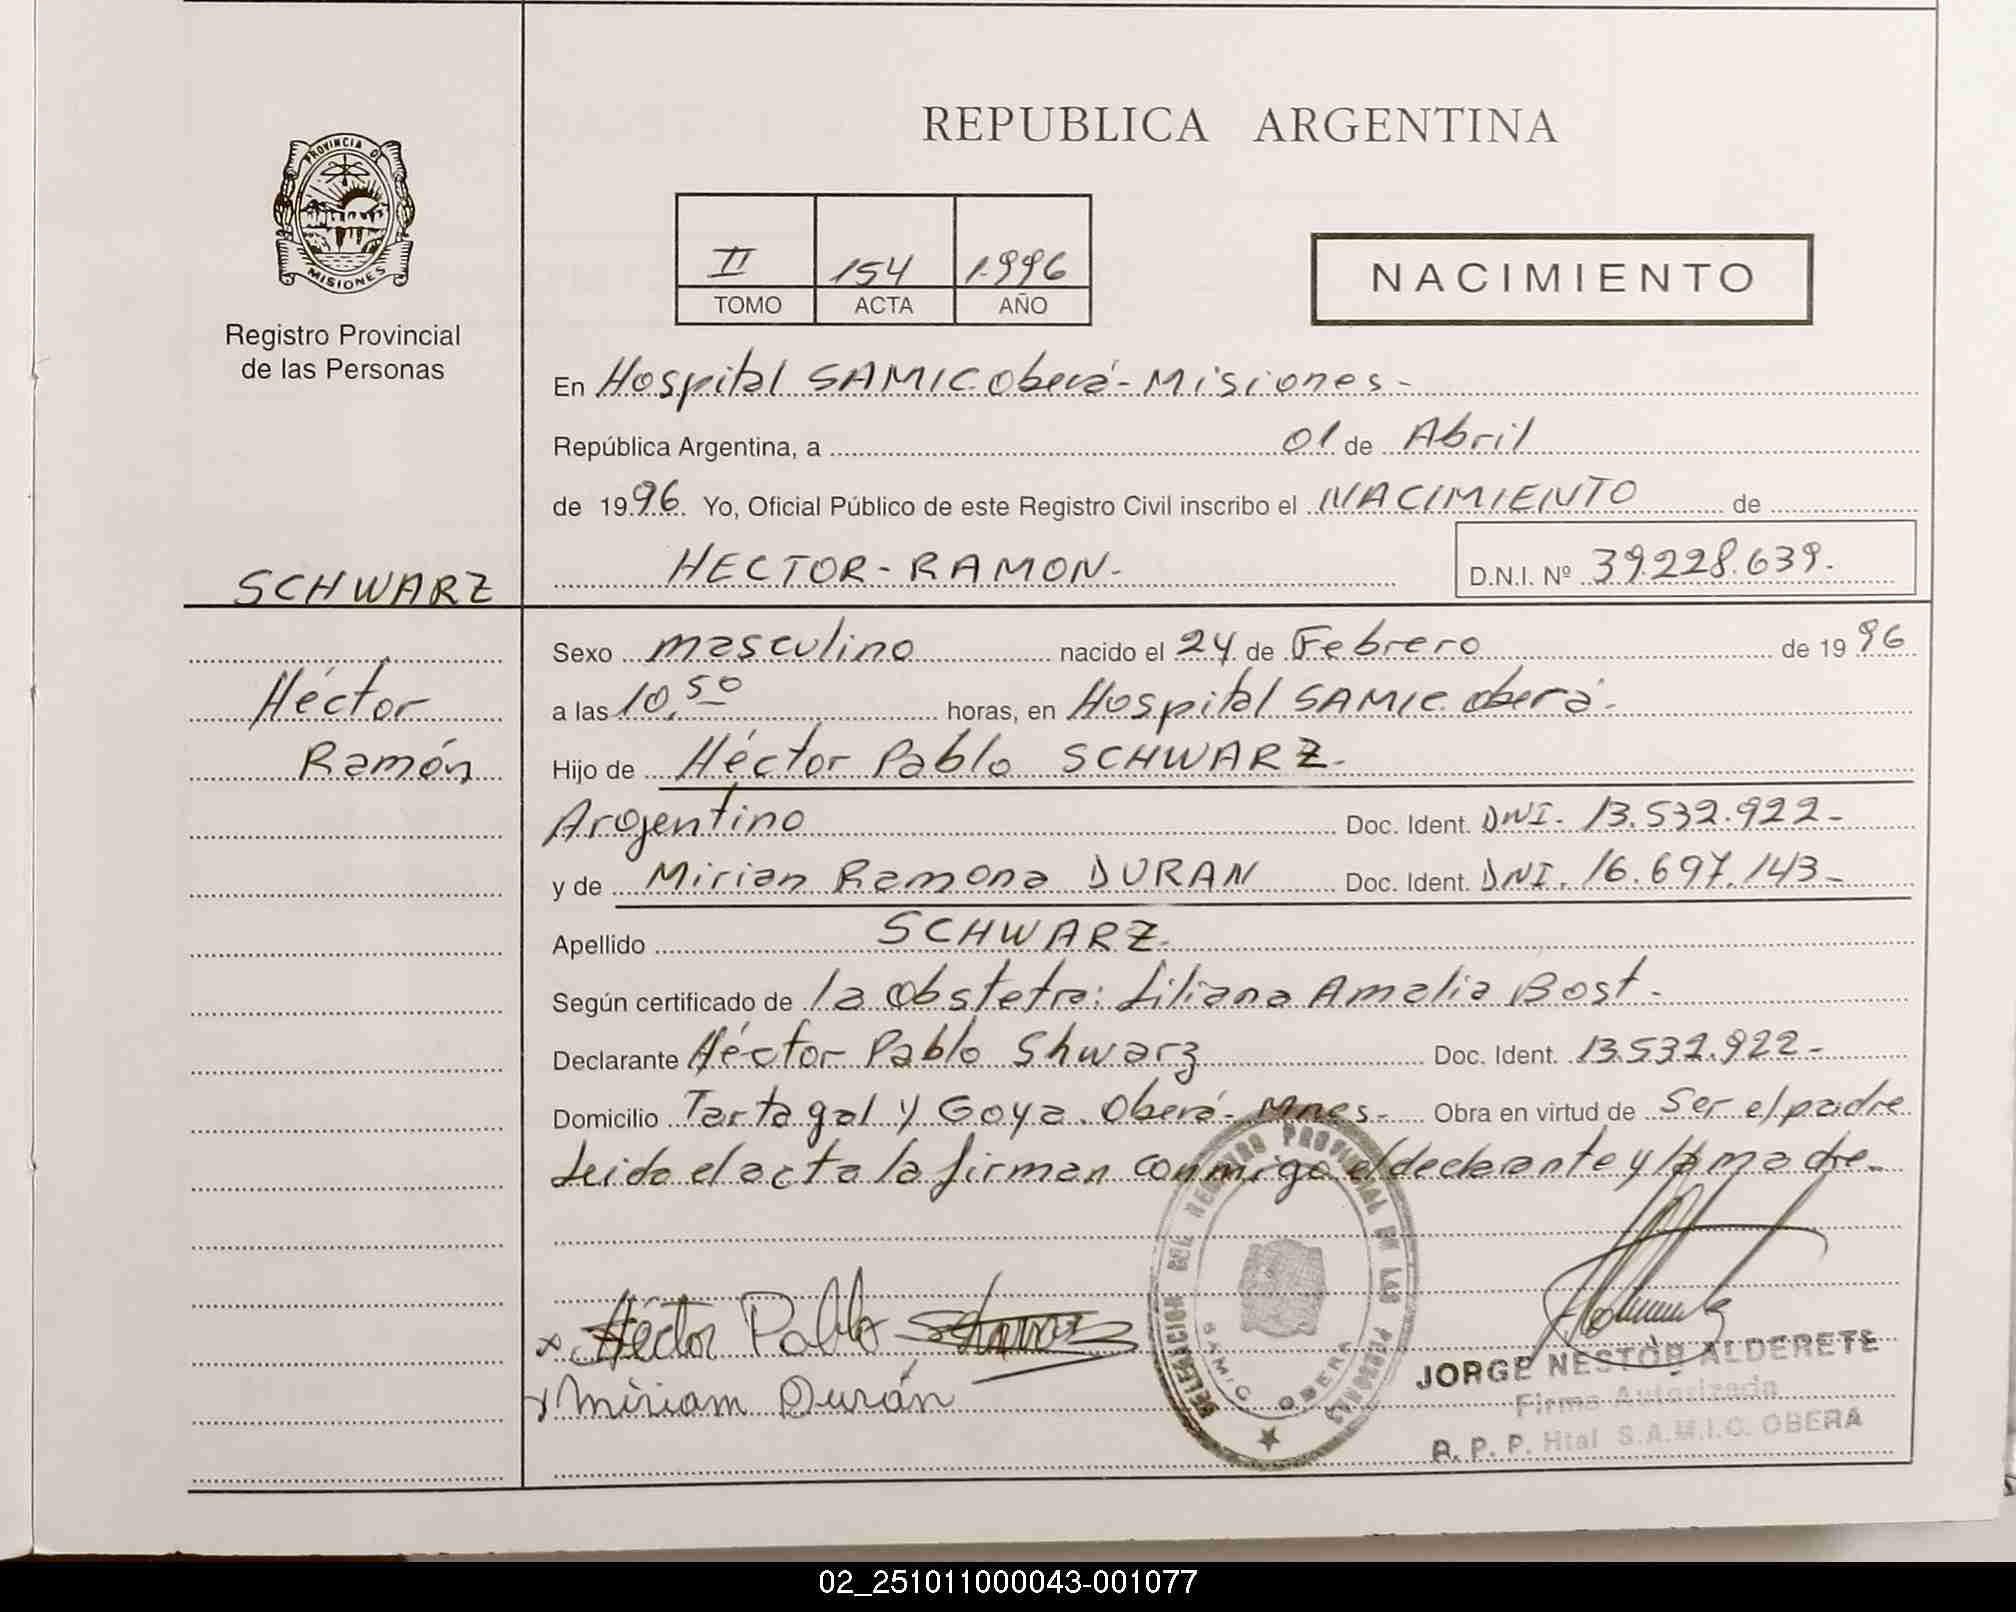 REPUBLICA ARGENTINA
PROVINCIA DE
MISIONES
Registro Provincial
de las Personas
II 154 1.996
TOMO ACTA AÑO
NACIMIENTO
En Hospital SAMIC. Oberá - Misiones -
República Argentina, a 01 de Abril
de 1996. Yo, Oficial Público de este Registro Civil inscribo el NACIMIENTO de
SCHWARZ
HECTOR - RAMON - D.N.I. Nº 39.228.639.
Héctor
Ramón
Sexo masculino nacido el 24 de Febrero de 1996
a las 10,50 horas, en Hospital SAMIC Oberá.
Hijo de Héctor Pablo SCHWARZ.
Arogentino Doc. Ident. DNI. 13.532.922-
y de Mirian Ramona DURAN Doc. Ident. DNI. 16.697.143-
Apellido SCHWARZ.
Según certificado de la obstetra: Liliana Amalia Bost.
Declarante Héctor Pablo Shwarz Doc. Ident. 13.532.922-
Domicilio Tartagal y Goya. Oberá - Mnes - Obra en virtud de Ser el padre
Leida el acta la firman conmigo el declarante y la madre.
x Héctor Pablo Schwarz
x Miriam Durán
DELEGACION DEL REGISTRO PROVINCIAL DE LAS PERSONAS
SAMIC. OBERA
JORGE NESTOR ALDERETE
Firma Autorizada
R. P. P. Htal S.A.M.I.C. OBERA
02_251011000043-001077